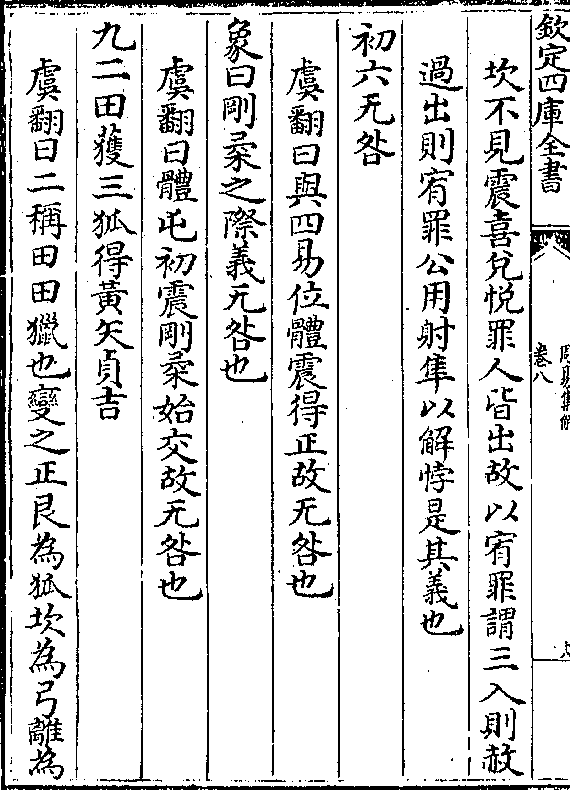 欽定四庫全書
周易集解
卷八
坎不見震喜兌悅罪人皆出故以宥罪謂三入則赦
過出則宥罪公用射隼以解悖是其義也
初六无咎
虞翻曰與四易位體震得正故无咎也
象曰剛柔之際義无咎也
虞翻曰體屯初震剛柔始交故无咎也
九二田獲三狐得黃矢貞吉
虞翻曰二稱田田獵也變之正艮為狐坎為弓離為